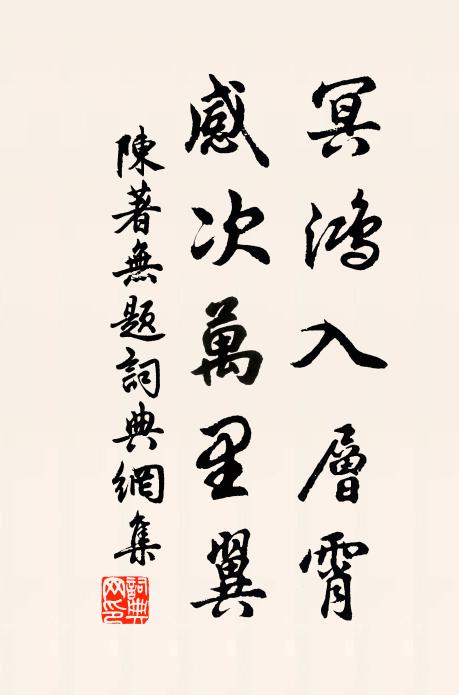 冥鴻入層霄
感次萬里翼
陳著無題詞典網集
詞典網印